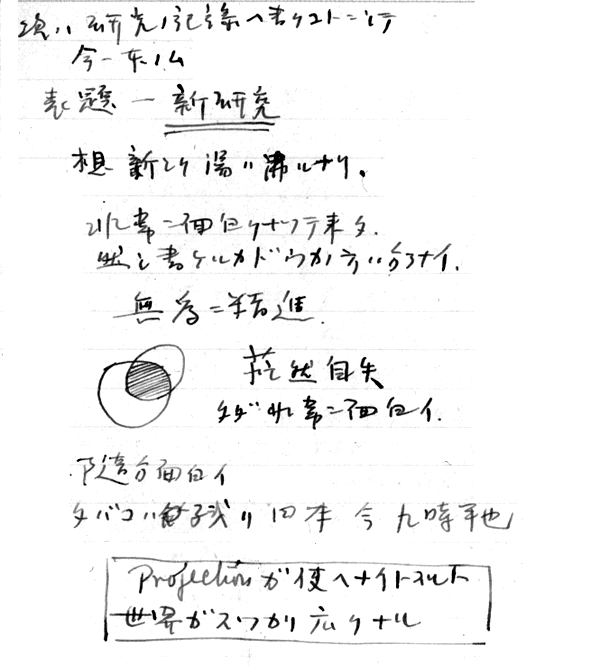 研究ノ記録ヘ書ケストニ
今一
表題 ー 新研究
想新シク湯ハ沸ルナリ。
非常ニ面白クナッテ来タ.
然シ書ケルカドウカハ分ラナイ.
無為ニ精進.
茫然自失
タダ非常ニ面白イ.
随分面白イ
タバコハ残リ四本 今九時半也
Projectionガ使ヘナイトスルト
世界ガスッカリ広クナル